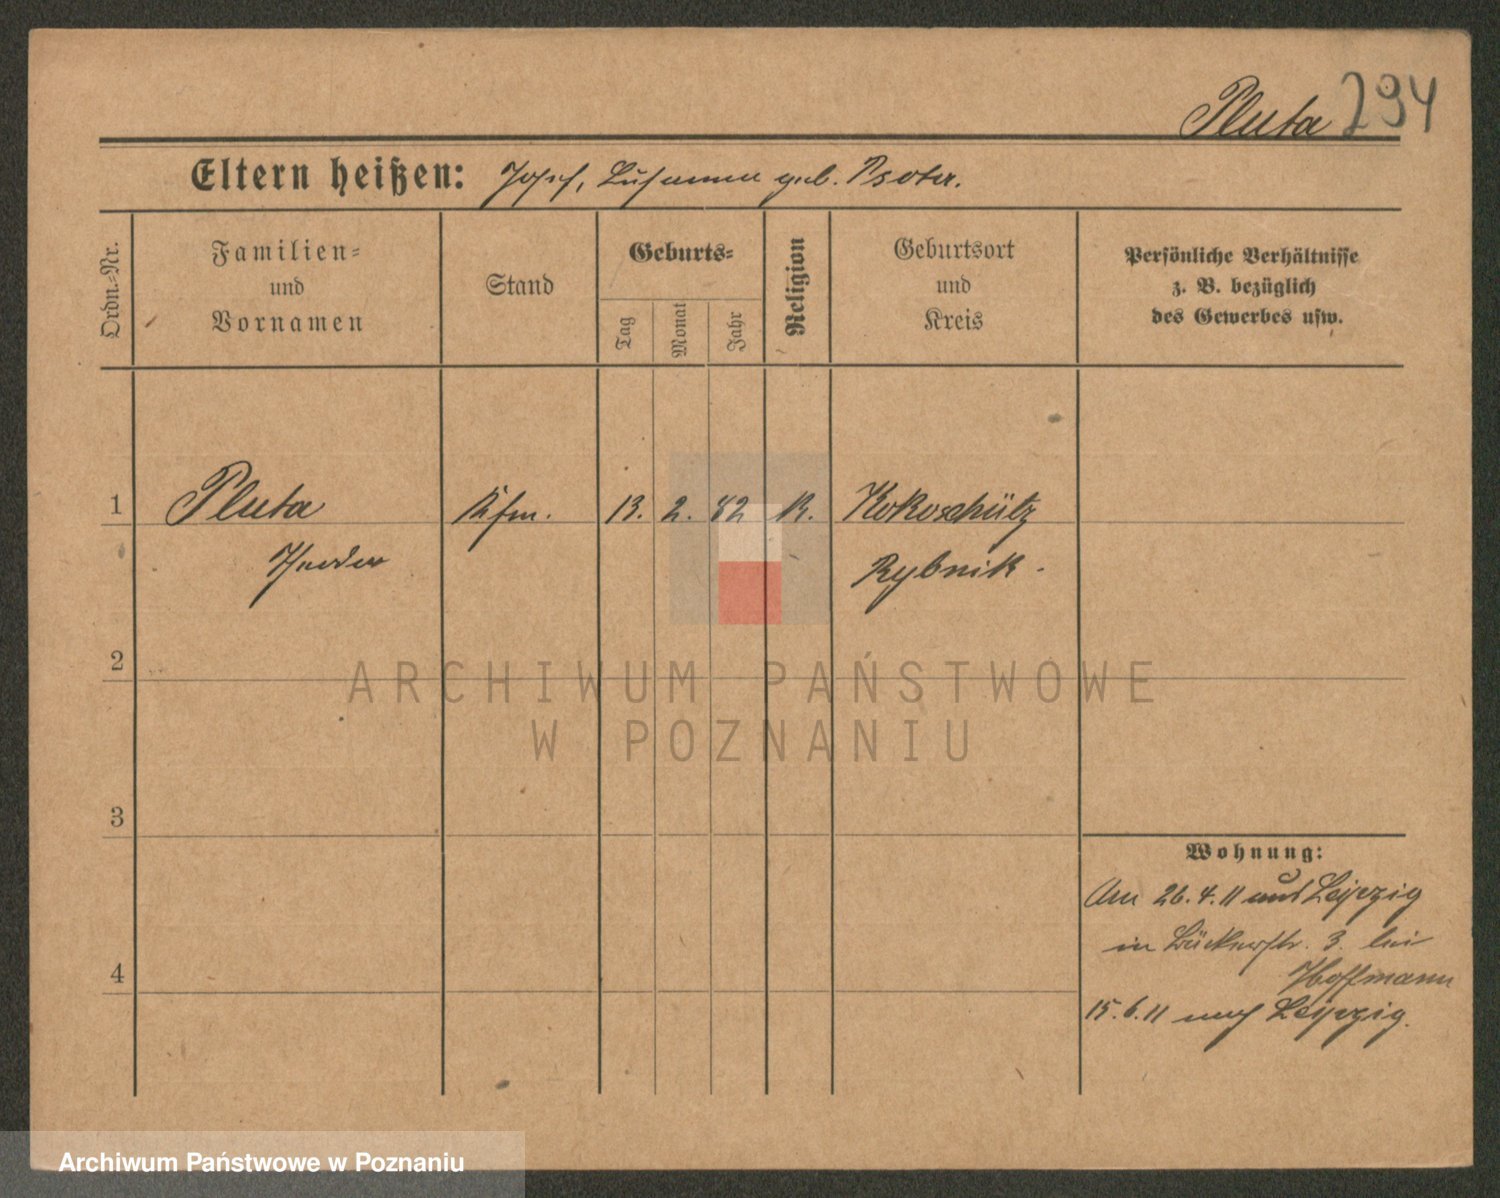 Pluta 294
Eltern heißen: Josef, Susanna geb. Psota.
Ordn.-Nr.
Familien-
und
Vornamen
Stand
Geburts-
Tag
Monat
Jahr
Religion
Geburtsort
und
Kreis
Persönliche Verhältnisse
z. B. bezüglich
des Gewerbes usw.
1 Pluta Kfm. 13. 2. 82 K. Kokoschütz
Theodor Rybnik.
2
3
4
Wohnung:
Am 26.4.11 aus Leipzig
in 3. bei
Hoffmann
15.6.11 nach Leipzig.
ARCHIWUM PAŃSTWOWE
W POZNANIU
Archiwum Państwowe w Poznaniu